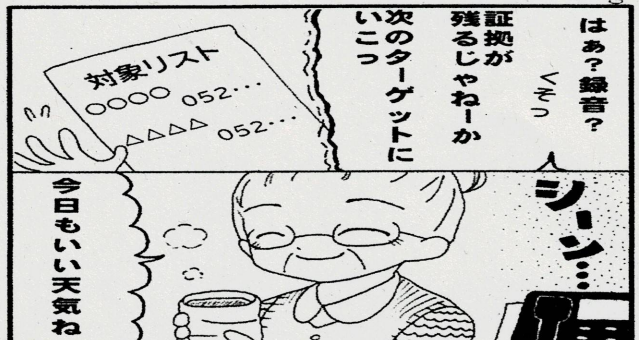 はぁ？録音？
くそっ
証拠が
残るじゃねーか
次のターゲットに
いこっ
対象リスト
○○○○ 052…
△△△△ 052…
シーン…
今日もいい天気ね